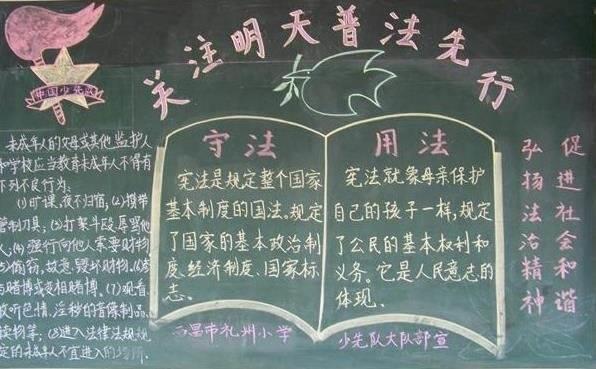 关注明天普法先行
中国少先队
未成年人的父母或其他监护人
和学校应当教育未成年人不得有
下列不良行为:
(1)旷课、夜不归宿,(2)携带
管制刀具;(3)打架斗殴、辱骂他
人,(4)强行向他人索要财物
(5)偷窃、故意毁坏财物。(6)参
与赌博或变相赌博、(7)观看
收听色情、淫秽的音像制品、
读物等;(8)进入法律法规规
定的未成年人不宜进入的场所.
守法
宪法是规定整个国家
基本制度的国法。规定
了国家的基本政治制
度、经济制度、国家标
志。
西昌市礼州小学
用法
宪法就象母亲保护
自己的孩子一样,规定
了公民的基本权利和
义务。它是人民意志的
体现。
少先队大队部宣
弘扬法治精神
促进社会和谐